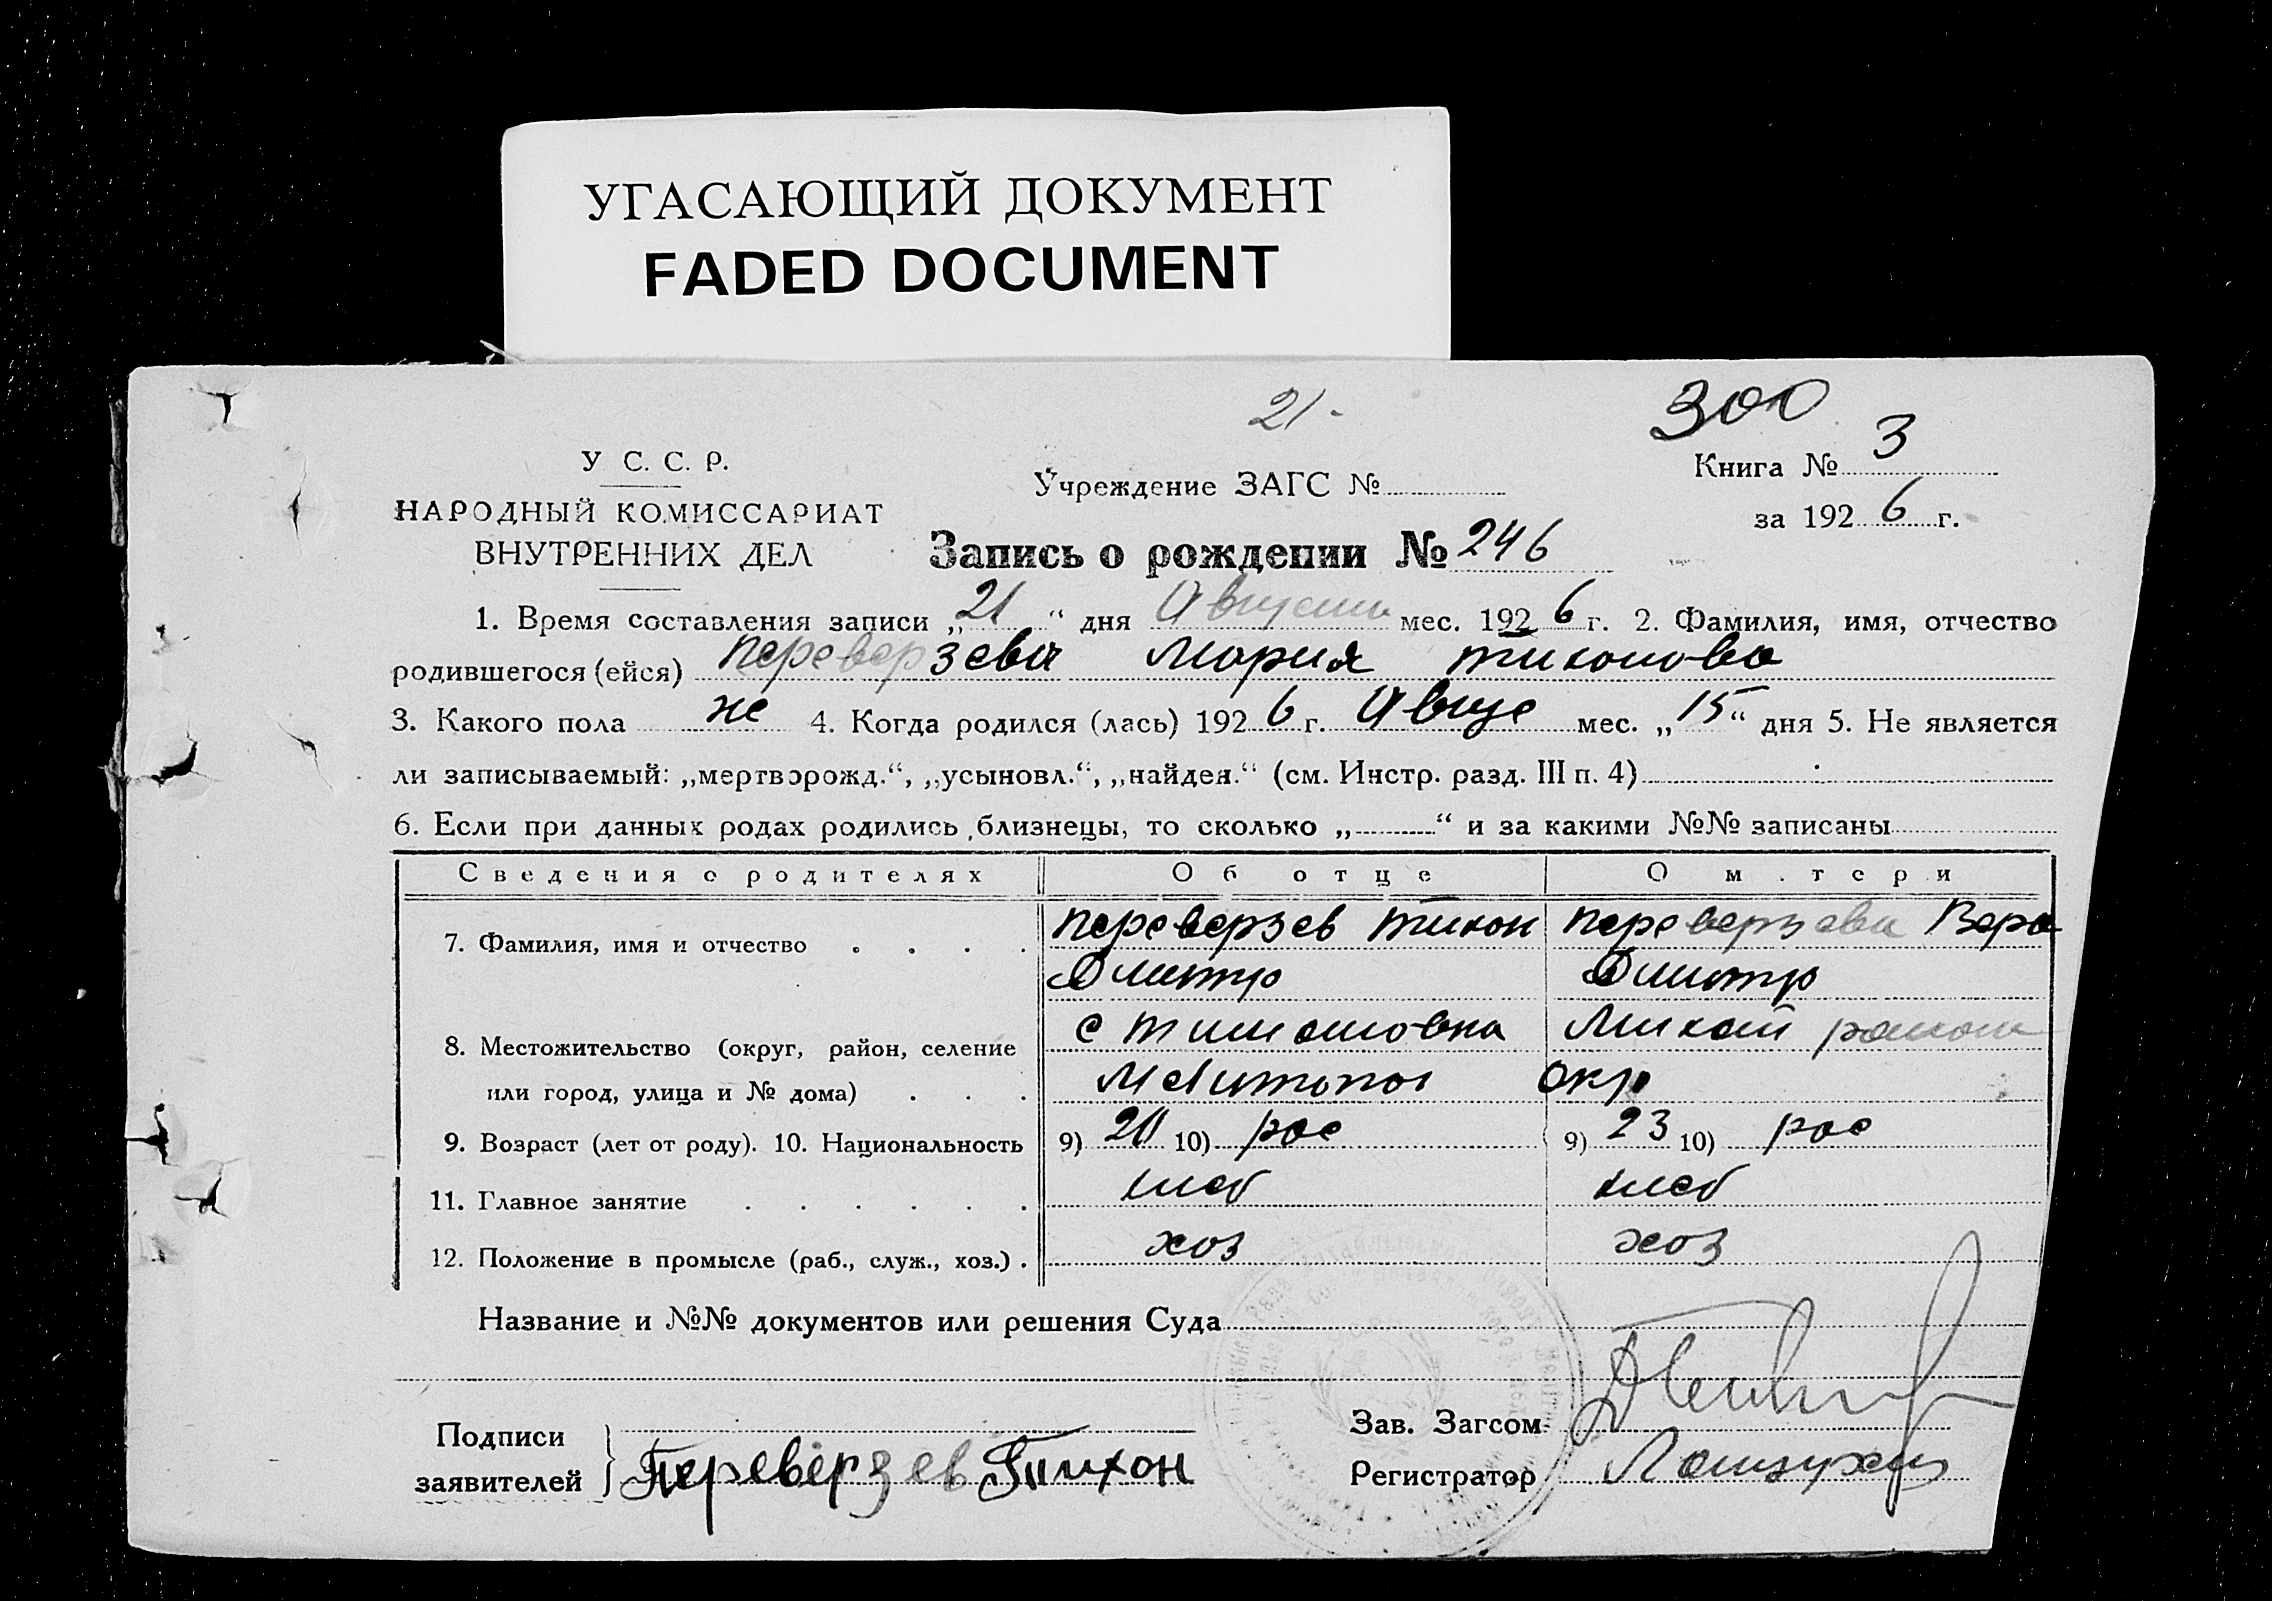 УГАСАЮЩИЙ ДОКУМЕНТ
FADED DOCUMENT
21-
300
У С. С. Р.
НАРОДНЫЙ КОМИССАРИАТ
ВНУТРЕННИХ ДЕЛ
Учреждение ЗАГС №
Книга № 3
за 1926 г.
Запись о рождении № 246
1. Время составления записи „21“ дня Августа мес. 1926 г. 2. Фамилия, имя, отчество
родившегося (ейся) Переверзева Мария Тихонова
3. Какого пола же 4. Когда родился (лась) 1926 г. Авгус мес. „15“ дня 5. Не является
ли записываемый: „мертворожд.“, „усыновл.“, „найден.“ (см. Инстр. разд. III п. 4)
6. Если при данных родах родились близнецы, то сколько „ “ и за какими №№ записаны
Сведения о родителях Об отце О м тери
7. Фамилия, имя и отчество Переверзев Тихон Переверзева Вера
Дмитр Дмитр
8. Местожительство (округ, район, селение с Тимошовка Михай район
или город, улица и № дома) Мелитопол Окр
9. Возраст (лет от роду). 10. Национальность 9) 20 10) рос 9) 23 10) рос
11. Главное занятие хлеб хлеб
12. Положение в промысле (раб., служ., хоз.) хоз хоз
Название и №№ документов или решения Суда
Подписи
заявителей Переверзев Тихон
Зав. Загсом
Регистратор